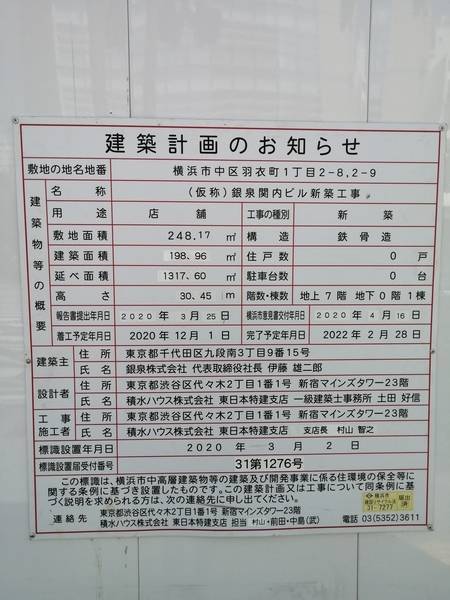 建築計画のお知らせ
敷地の地名地番 横浜市中区羽衣町1丁目2-8,2-9
建築物等の概要
名称 (仮称)銀泉関内ビル新築工事
用途 店舗 工事の種別 新築
敷地面積 248.17 ㎡ 構造 鉄骨造
建築面積 198.96 ㎡ 住戸数 0 戸
延べ面積 1317.60 ㎡ 駐車台数 0 台
高さ 30.45 m 階数・棟数 地上7階 地下0階 1棟
報告書提出年月日 2020年3月25日 横浜市意見書交付年月日 2020年4月16日
着工予定年月日 2020年12月1日 完了予定年月日 2022年2月28日
建築主 住所 東京都千代田区九段南3丁目9番15号
氏名 銀泉株式会社 代表取締役社長 伊藤 雄二郎
設計者 住所 東京都渋谷区代々木2丁目1番1号 新宿マインズタワー23階
氏名 積水ハウス株式会社 東日本特建支店 一級建築士事務所 土田 好信
工事施工者 住所 東京都渋谷区代々木2丁目1番1号 新宿マインズタワー23階
氏名 積水ハウス株式会社 東日本特建支店 支店長 村山 智之
標識設置年月日 2020年3月2日
標識設置届受付番号 31第1276号
この標識は、横浜市中高層建築物等の建築及び開発事業に係る住環境の保全等に
関する条例に基づき設置したものです。この建築計画又は工事について同条例に基
づく説明を求められる方は、次の連絡先に申し出てください。
連絡先 東京都渋谷区代々木2丁目1番1号 新宿マインズタワー23階
積水ハウス株式会社 東日本特建支店 担当 村山・前田・中島(武) 電話 03(5352)3611
横浜市
建設リサイクル法
31-7277
届出済